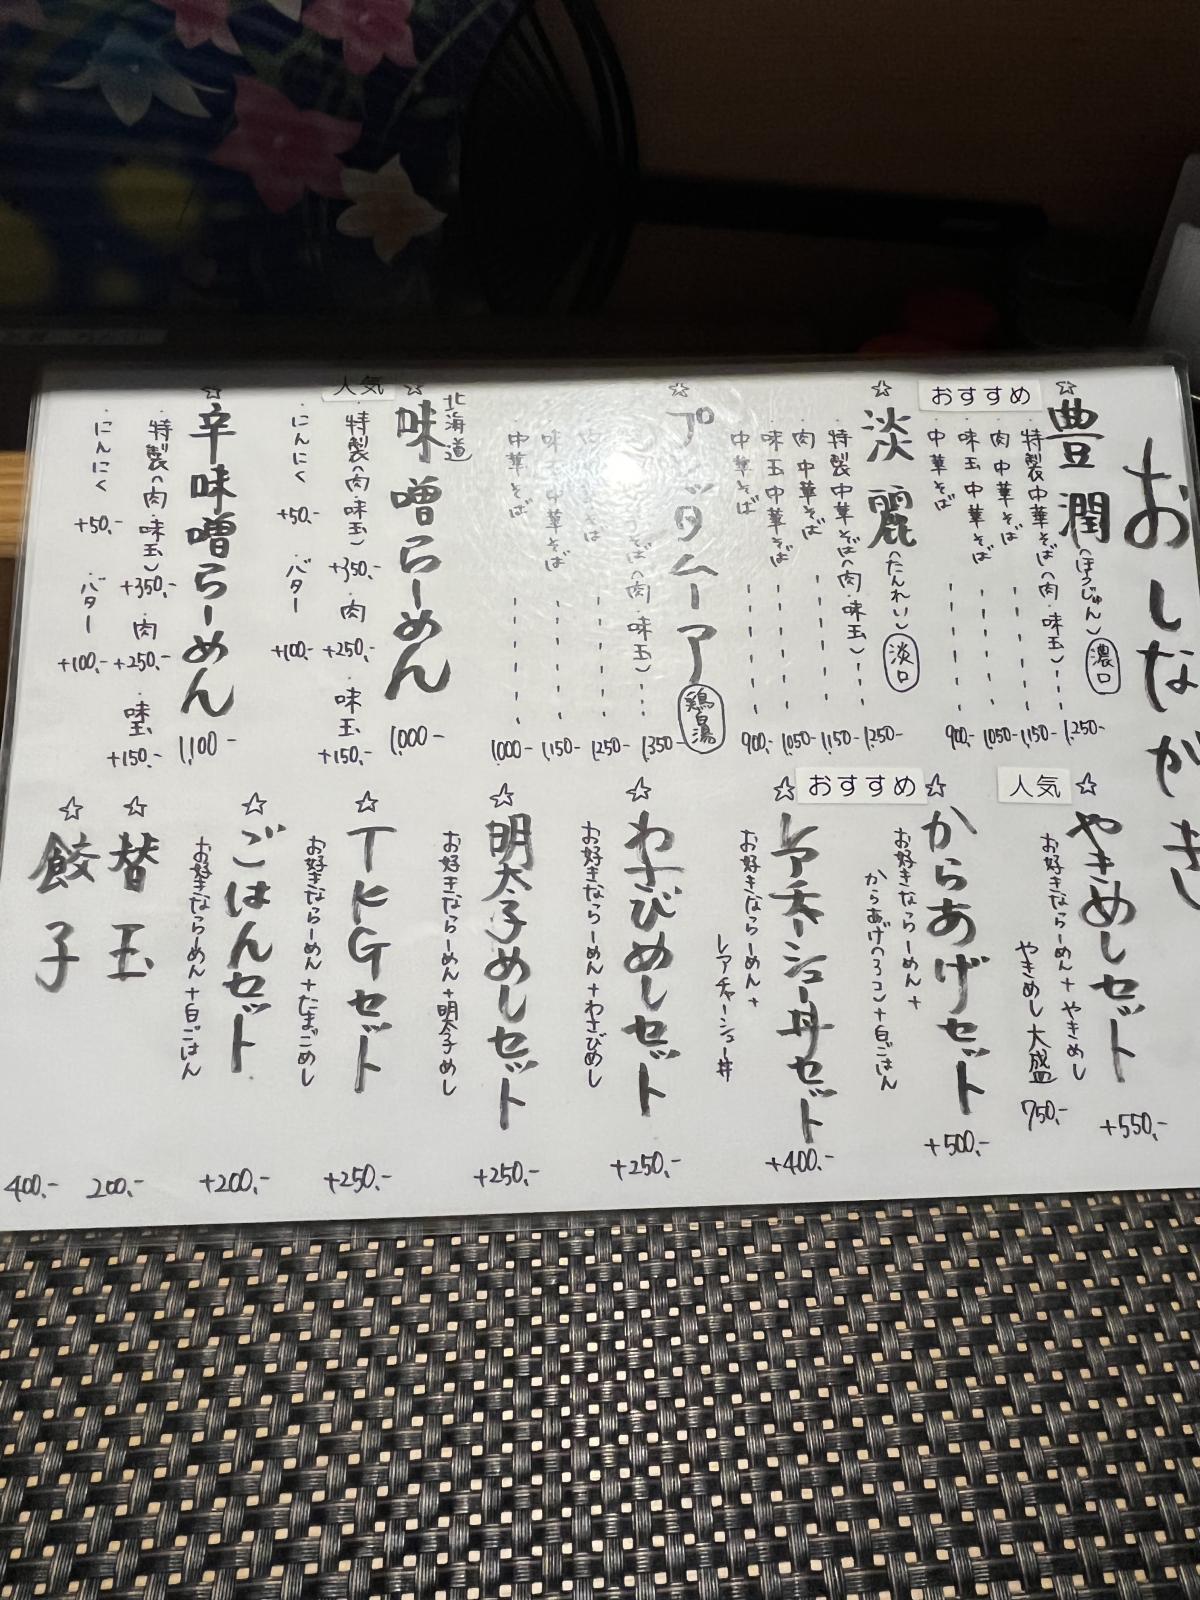 おしながき
おすすめ
☆豊潤(ほうじゅん) 濃口
・特製中華そば(肉・味玉) 1,250-
・肉中華そば 1,150-
・味玉中華そば 1,050-
・中華そば 900,-
☆淡麗(たんれい) 淡口
・特製中華そば(肉・味玉) 1,250-
・肉中華そば 1,150-
・味玉中華そば 1,050-
・中華そば 900,-
☆プッタムーア 鶏白湯
そば(肉・味玉) 1,350-
そば 1,250-
味玉中華そば 1,150-
中華そば 1,000-
人気
☆北海道
味噌らーめん 1,000-
・特製(肉・味玉) +350,- ・肉 +250,- ・味玉 +150,-
・にんにく +50,- ・バター +100,-
☆辛味噌らーめん 1,100-
・特製(肉・味玉) +350,- ・肉 +250,- ・味玉 +150,-
・にんにく +50,- ・バター +100,-
人気
☆やきめしセット +550,-
お好きならーめん+やきめし
やきめし大盛 750,-
おすすめ
☆からあげセット +500,-
お好きならーめん+
からあげ(3コ)+白ごはん
☆レアチャーシュー丼セット +400,-
お好きならーめん+
レアチャーシュー丼
☆わさびめしセット +250,-
お好きならーめん+わさびめし
☆明太子めしセット +250,-
お好きならーめん+明太子めし
☆TKGセット +250,-
お好きならーめん+たまごめし
☆ごはんセット +200,-
お好きならーめん+白ごはん
☆替玉 200,-
☆餃子 400,-